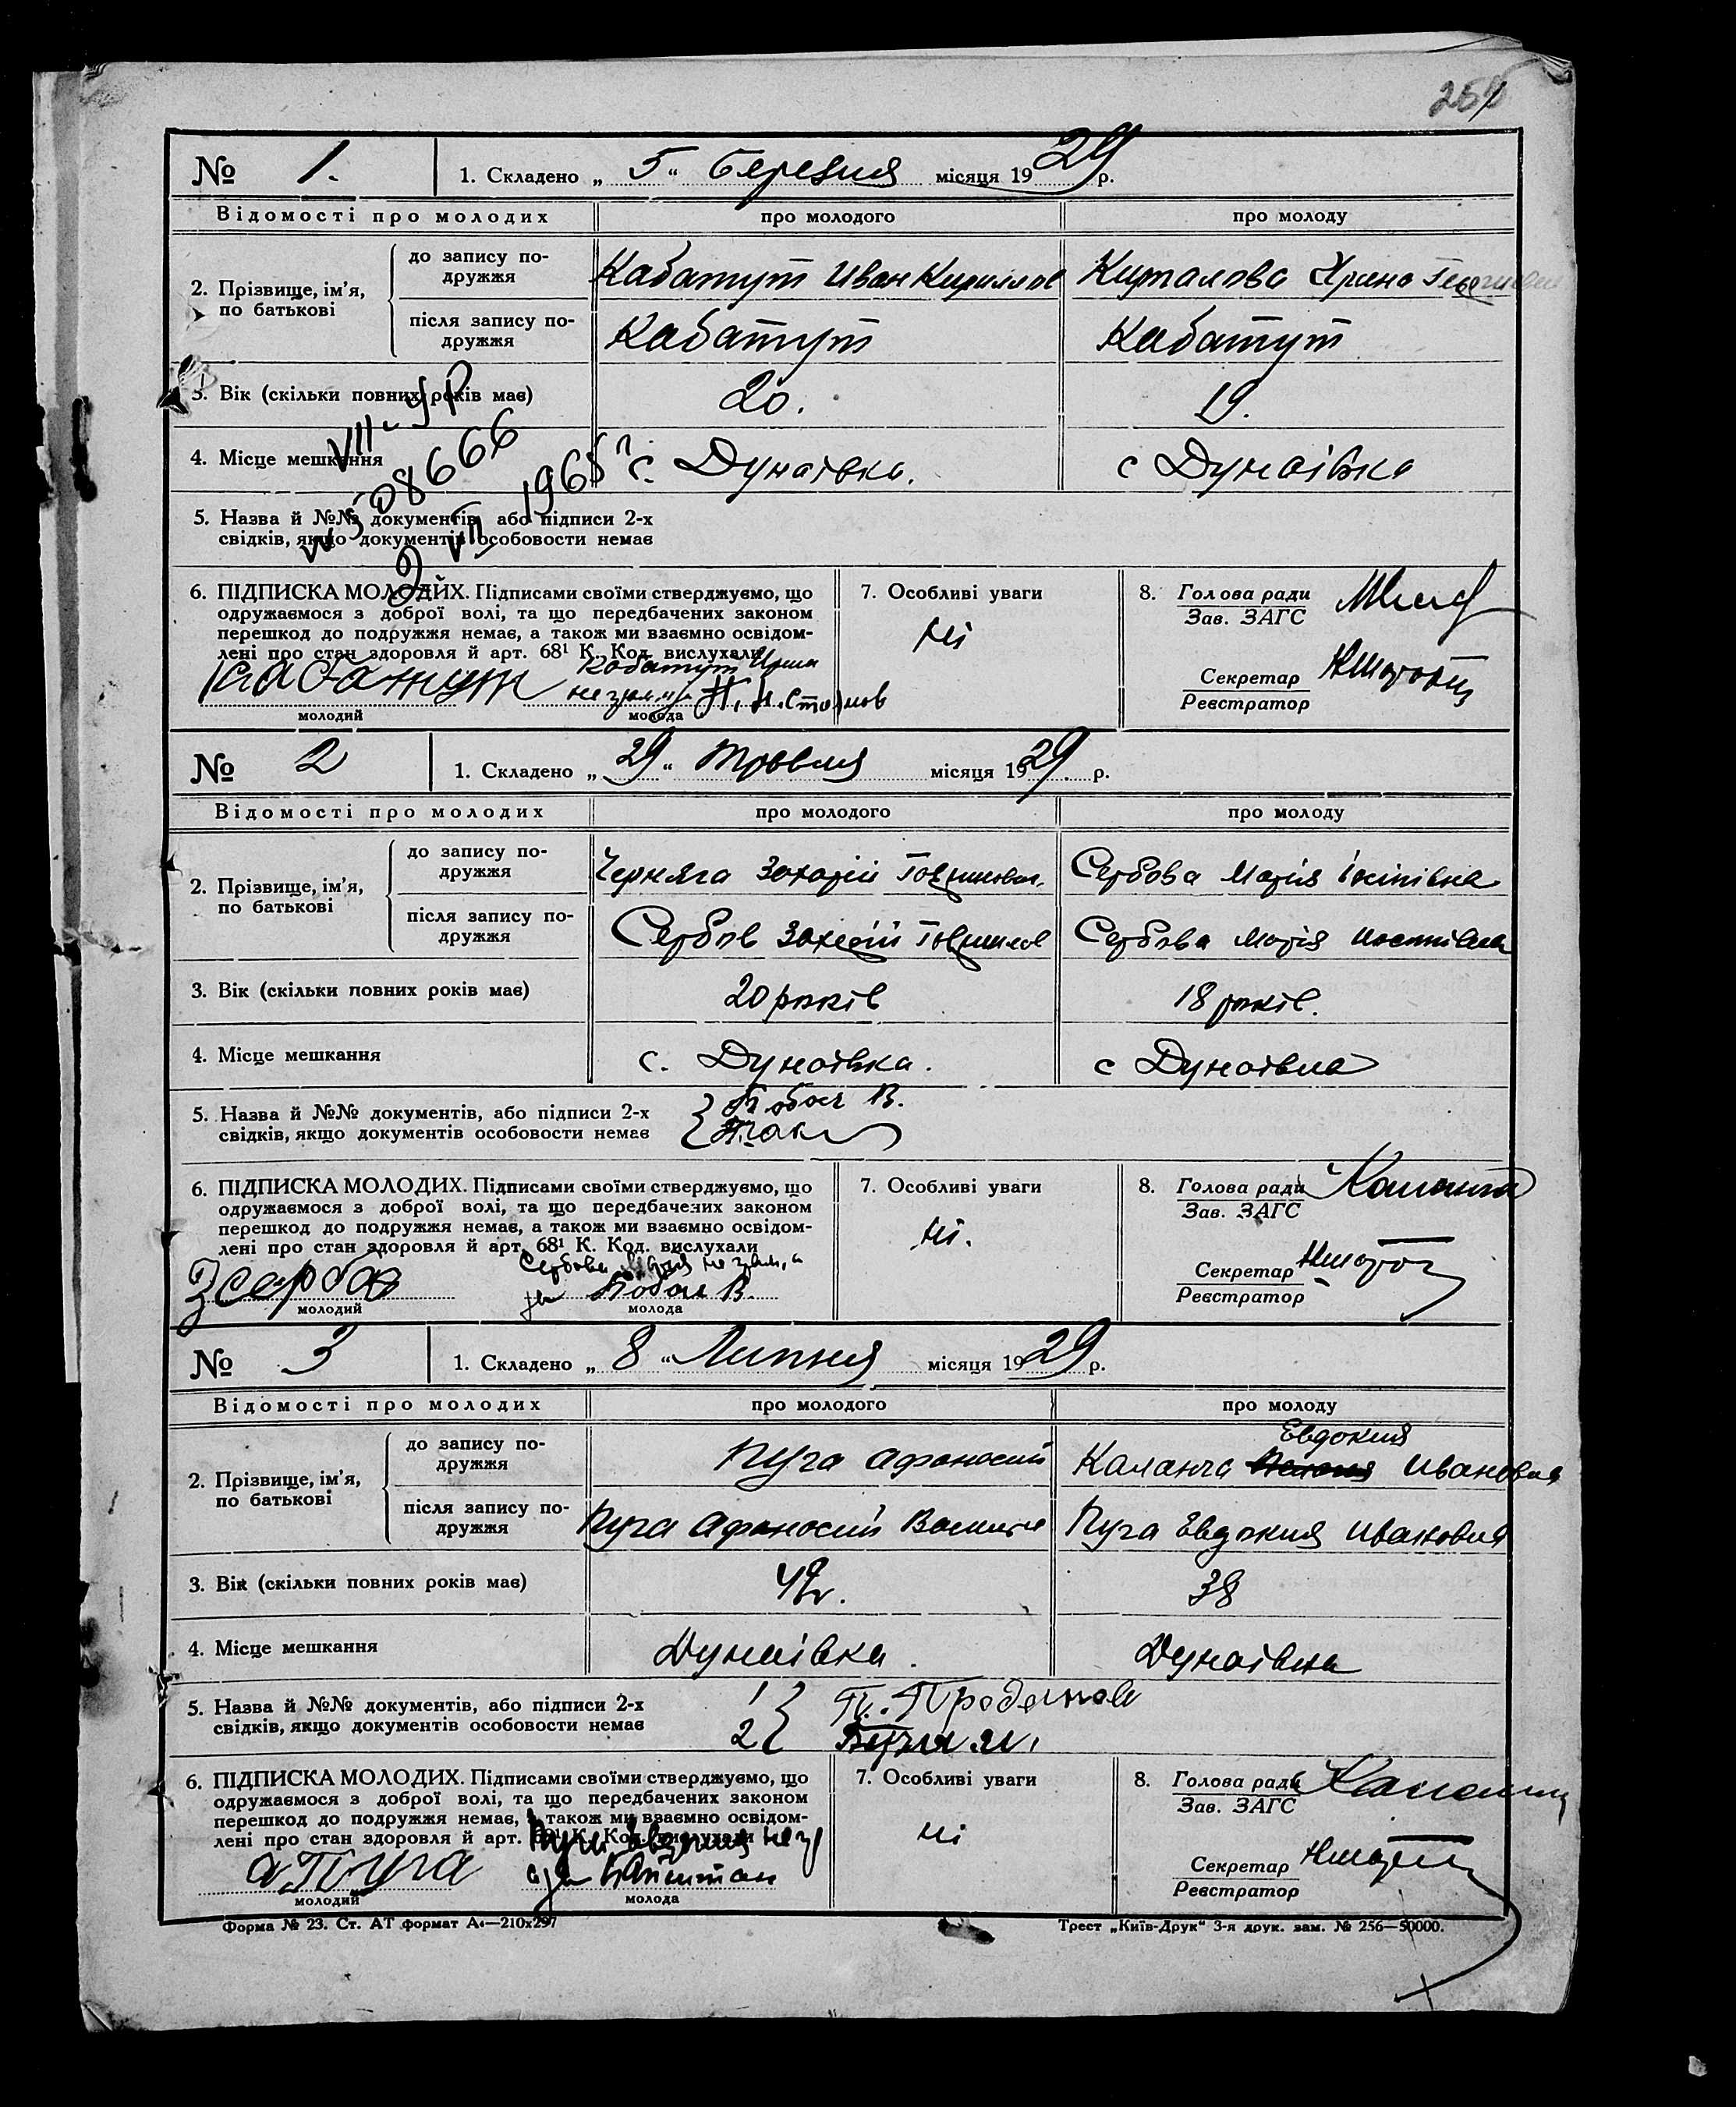 № 1. 1. Складено „ 5 “ березня місяця 1929 р.
Відомості про молодих про молодого про молоду
2. Прізвище, ім’я, по батькові
до запису подружжя Кабатут Иван Кириллов Ирина
після запису подружжя Кабатут Кабатут
3. Вік (скільки повних років має) 20. 19.
VIII-УР
4. Місце мешкання с. Дунаївка. с Дунаївка
№ 308666
2 VII 1965 г.
5. Назва й №№ документів, або підписи 2-х
свідків, якщо документів особовости немає
6. ПІДПИСКА МОЛОДИХ. Підписами своїми стверджуємо, що
одружаємося з доброї волі, та що передбачених законом
перешкод до подружжя немає, а також ми взаємно освідом-
лені про стан здоровля й арт. 68¹ К. Код. вислухали
Кабатут Кабатут Ирина
молодий молода
7. Особливі уваги
ні
8. Голова ради
Зав. ЗАГС
Секретар
Реєстратор
№ 2 1. Складено „ 29 “ травня місяця 1929. р.
Відомості про молодих про молодого про молоду
2. Прізвище, ім’я, по батькові
до запису подружжя Черняга Захарій Сербова Марія Іосіпівна
після запису подружжя Сербов Захарій Сербова Марія
3. Вік (скільки повних років має) 20 років 18 років.
4. Місце мешкання с. Дунаївка. с Дунаївка
5. Назва й №№ документів, або підписи 2-х
свідків, якщо документів особовости немає
6. ПІДПИСКА МОЛОДИХ. Підписами своїми стверджуємо, що
одружаємося з доброї волі, та що передбачених законом
перешкод до подружжя немає, а також ми взаємно освідом-
лені про стан здоровля й арт. 68¹ К. Код. вислухали
Сербова Марія
молодий молода
7. Особливі уваги
ні.
8. Голова ради
Зав. ЗАГС
Секретар
Реєстратор
№ 3 1. Складено „ 8 “ Липня місяця 1929 р.
Відомості про молодих про молодого про молоду
2. Прізвище, ім’я, по батькові
Евдокия
до запису подружжя Пуга Афонасий Каланча Ивановна
після запису подружжя Пуга Афонасий Пуга Евдокия Ивановна
3. Вік (скільки повних років має) 38
4. Місце мешкання Дунаївка. Дунаївка
5. Назва й №№ документів, або підписи 2-х
свідків, якщо документів особовости немає
1
2
6. ПІДПИСКА МОЛОДИХ. Підписами своїми стверджуємо, що
одружаємося з доброї волі, та що передбачених законом
перешкод до подружжя немає, а також ми взаємно освідом-
лені про стан здоровля й арт. 68¹ К. Код. вислухали
а Пуга
молодий молода
7. Особливі уваги
ні
8. Голова ради
Зав. ЗАГС
Секретар
Реєстратор
Форма № 23. Ст. АТ формат А₄—210х297
Трест „Київ-Друк“ 3-я друк. зам. № 256—50000.